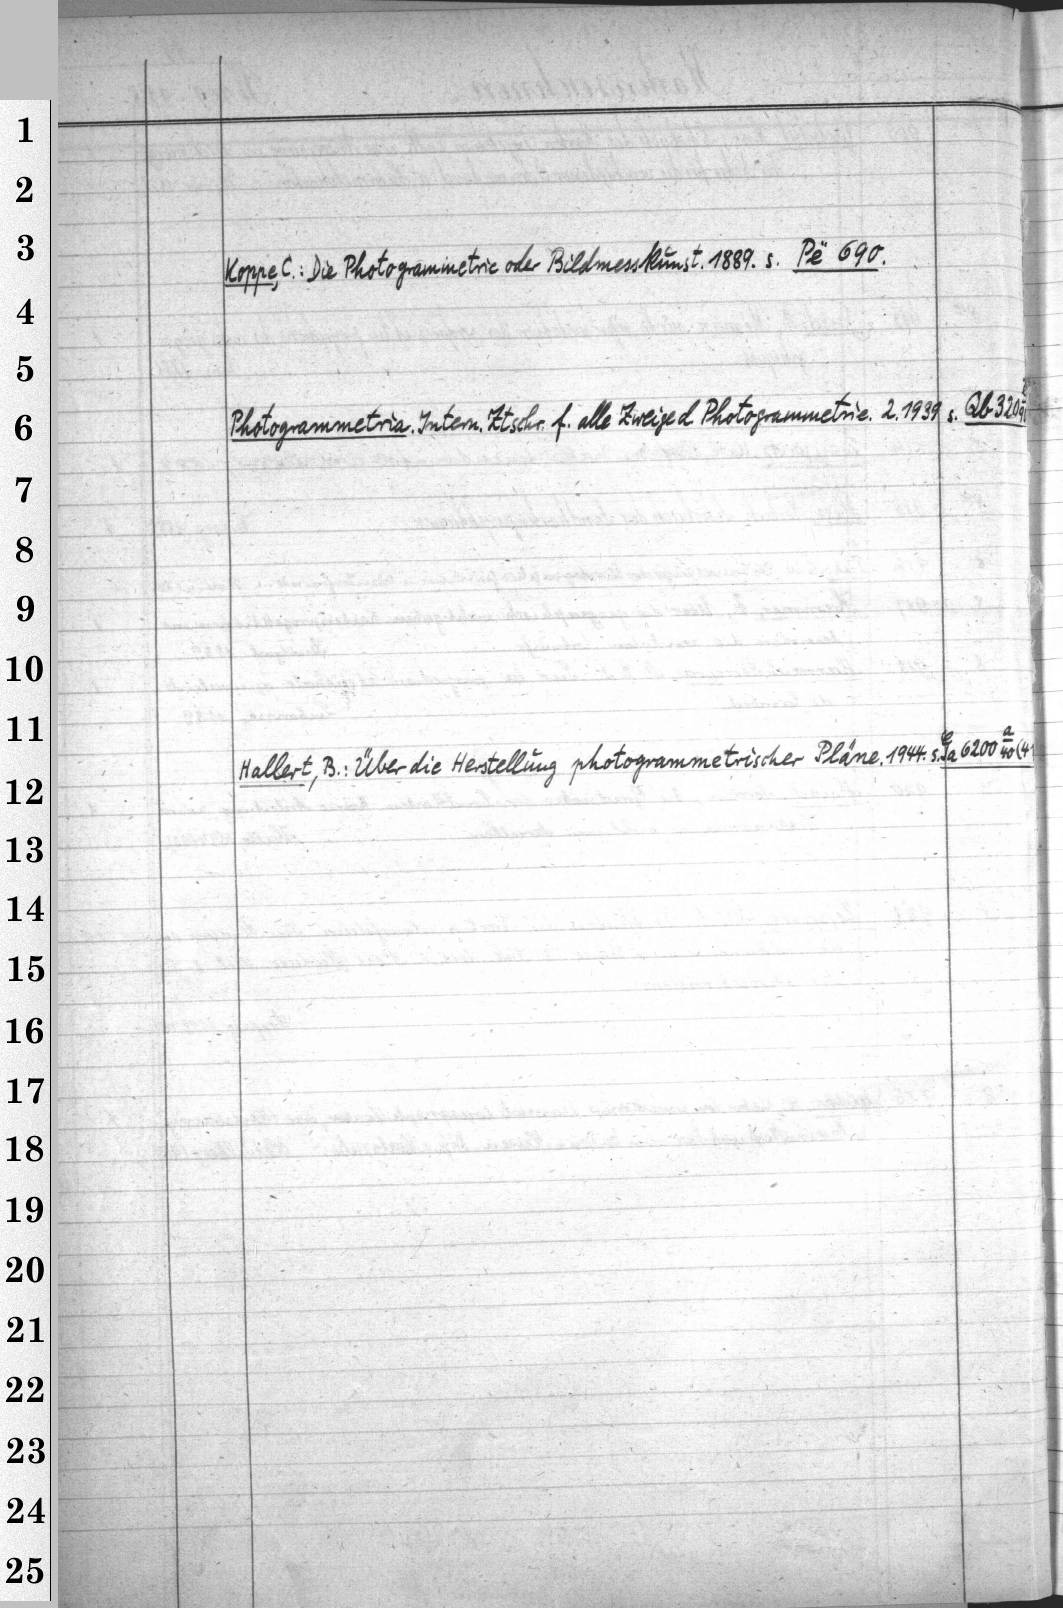 1
2
3
Koppe, C.: Die Photogrammetrie oder Bildmesskunst. 1889. s. Pë 690.
4
5
Photogrammetria. Intern. Ztschr. f. alle Zweige d Photogrammetrie. 2.1939 s. Qb 320
6
7
8
9
10
11
Hallert, B.: Über die Herstellung photogrammetrischer Pläne. 1944. s. 6200 a/40 (4
12
13
14
15
16
17
18
19
20
21
22
23
24
25